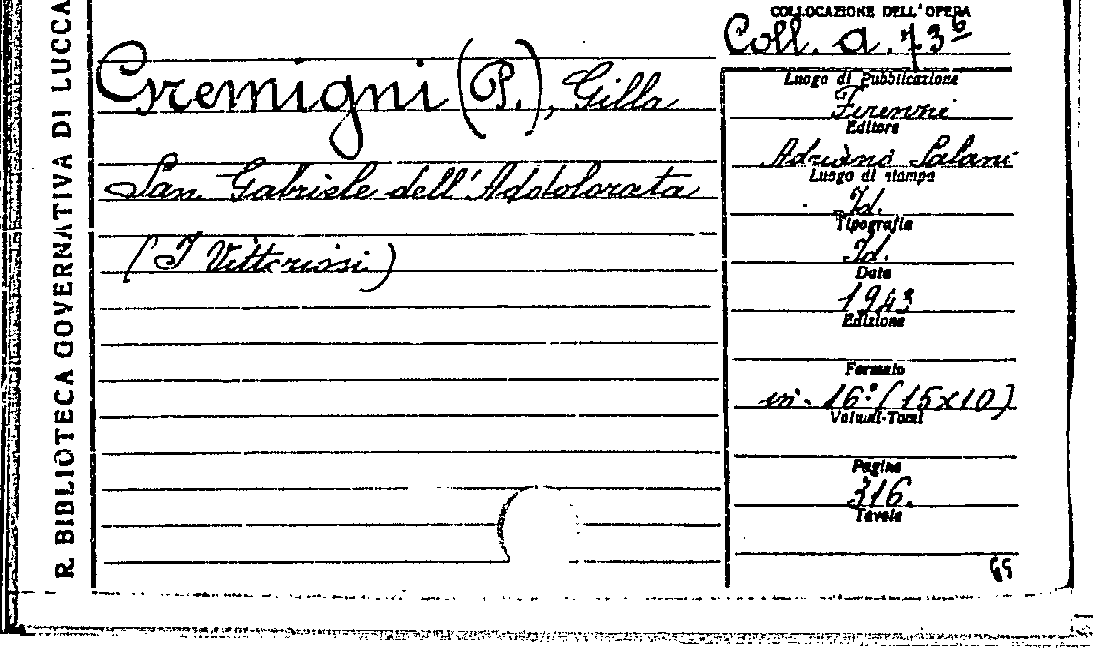 R. BIBLIOTECA GOVERNATIVA DI LUCCA
Gremigni (P.), Gilla
San Gabriele dell'Addolorata
(I Vittoriosi)
COLLOCAZIONE DELL'OPERA
Coll. a. 73⁶
Luogo di Pubblicazione
Firenze
Editore
Adriano Salani
Luogo di stampa
Id.
Tipografia
Id.
Data
1943
Edizione
Formato
in-16° (15x10)
Volumi-Tomi
Pagine
316.
Tavole